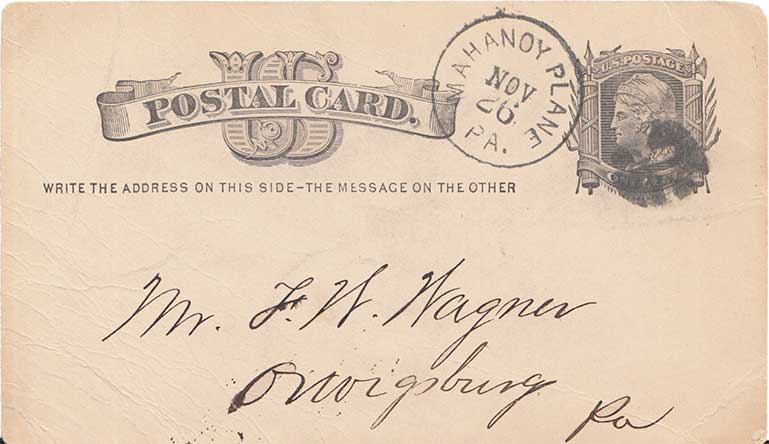 US
POSTAL CARD.
MAHANOY PLANE
NOV
26
PA.
U.S. POSTAGE
WRITE THE ADDRESS ON THIS SIDE–THE MESSAGE ON THE OTHER
Mr. F. W. Wagner
Orwigsburg
Pa